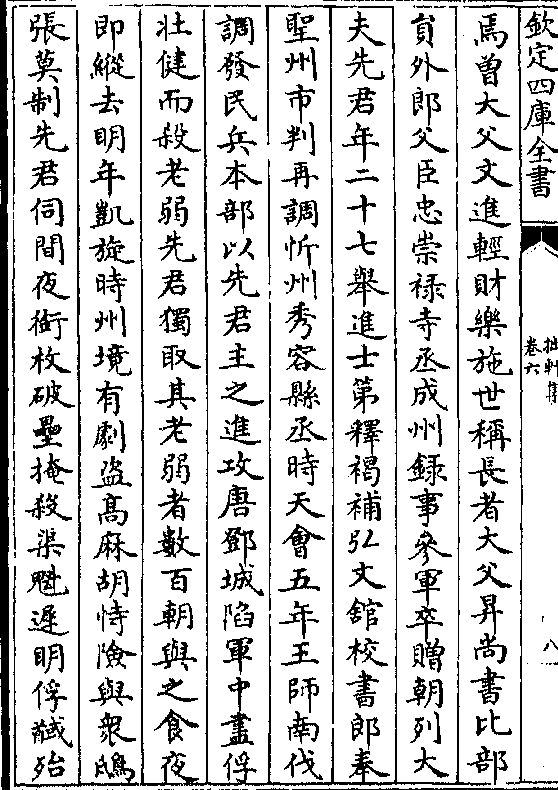 欽定四庫全書
拙軒集
卷六
八
焉曽大父文進輕財樂施世稱長者大父昇尚書比部
貟外郎父臣忠崇禄寺丞成州録事參軍卒贈朝列大
夫先君年二十七舉進士第釋褐補弘文舘校書郎奉
聖州市判再調忻州秀容縣丞時天會五年王師南伐
調發民兵本部以先君主之進攻唐鄧城陷軍中盡俘
壯健而殺老弱先君獨取其老弱者數百朝與之食夜
即縱去明年凱旋時州境有劇盜髙麻胡恃險與衆鴟
張莫制先君伺間夜銜枚破壘掩殺渠魁遲明俘馘殆